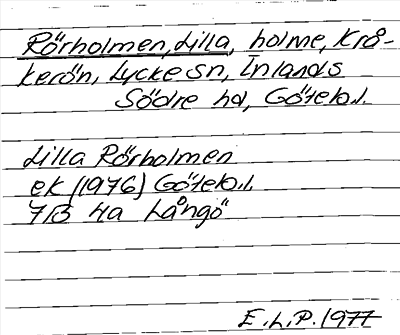 Rörholmen, Lilla, holme, Krå-
kerön, Lycke sn, Inlands
Södre hd, Göteb.l.
Lilla Rörholmen
ek (1976) Göteb.l.
7B 4a Långö
E.L.P. 1977